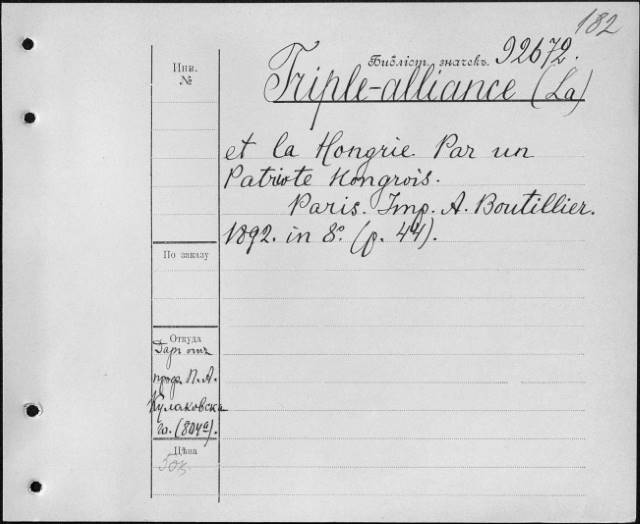 182
Инв.
№
Библіот. значекъ. 92672.
Triple-alliance (La)
et la Hongrie. Par un
Patriote Hongrois.
Paris. Imp. A. Boutillier.
1892. in 8º. (p. 44).
По заказу
Откуда
Даръ отъ
проф. П. А.
Кулаковска
го. (804а).
Цѣна
50к